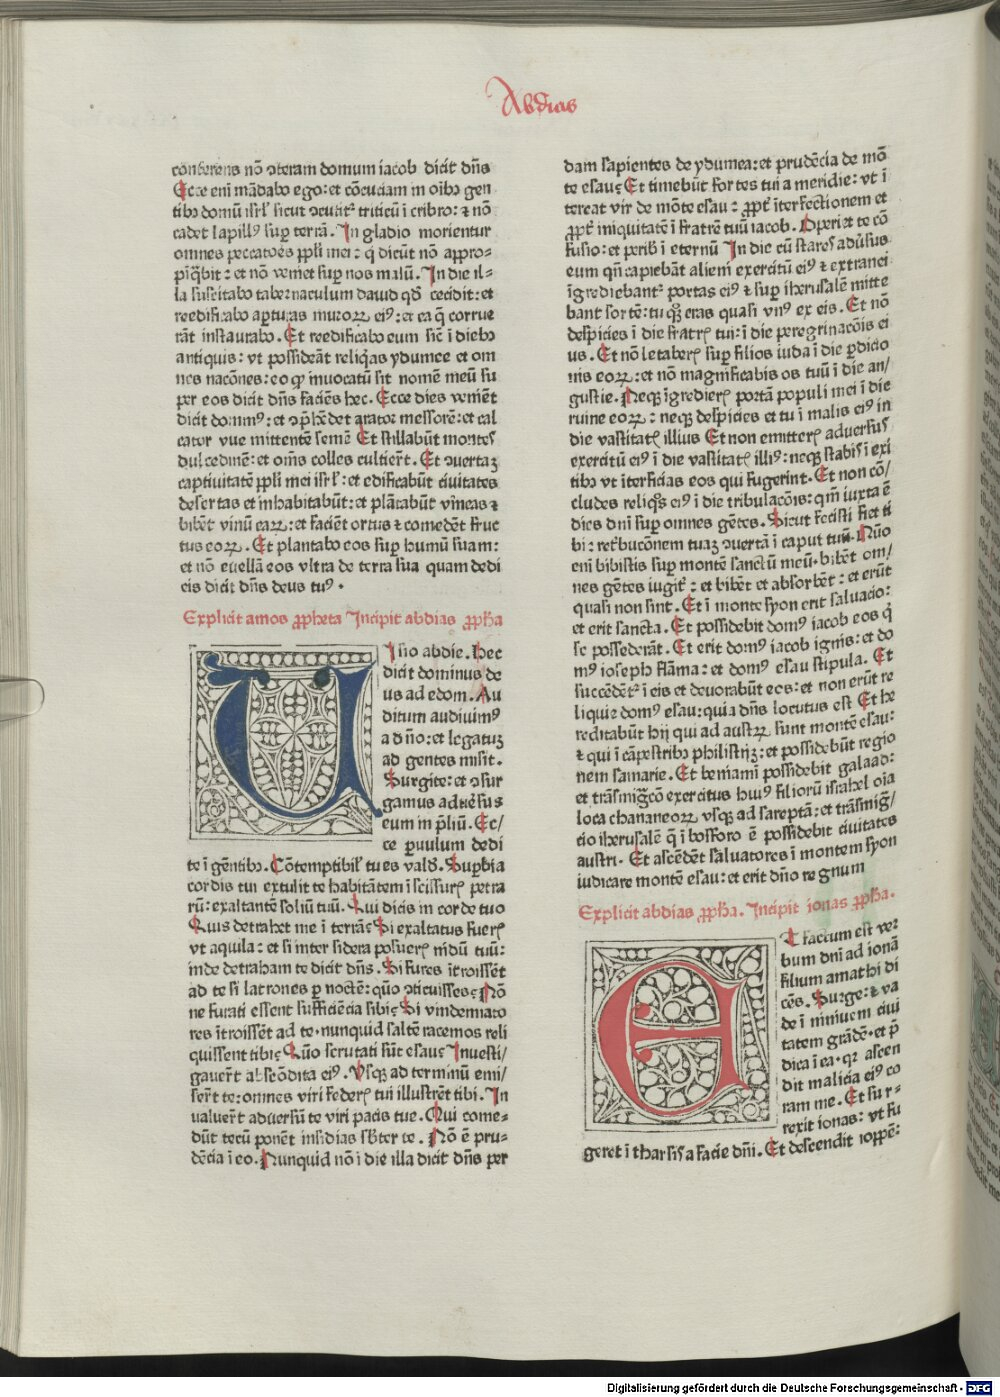 Abdias
conterens nō ɔteram domum iacob dicit dn̄s
Ecce eni mādabo ego: et cōcuciam in oib9 gen
tib9 domū isrl̄ sicut ɔcutit᷑ triticū ī cribro: ⁊ nō
cadet lapill9 sup terrā. In gladio morientur
omnes peccatoēs ppl̄i mei: q̄ dicūt nō appro⸗
pīq̄bit: et nō veniet sup nos malū. In die il⸗
la suscitabo tabernaculum dauid qd̄ cecidit: et
reedificabo apturas muroꝝ ei9: et ea q̄ corrue
rāt instaurabo. Et reedificabo eum sic̄ ī dieb9
antiquis: vt possideāt reliq̄as ydumee et om
nes nacōnes: eo qp̄ inuocatū sit nomē meū su
per eos dicit dn̄s faciēs hec. Ecce dies veniēt
dicit domin9: et ɔp̄hēdet arator messorē: et cal
cator vue mittentē semē Et stillabūt montes
dulcedinē: et om̄s colles culti er̄t. Et ɔuertaꝫ
captiuitatē ppl̄i mei isrl̄: et edificabūt ciuitates
desertas et inhabitabūt: et plātabūt vīneas ⁊
bibēt vinū eaꝝ: et faciēt ortus ⁊ comedēt fruc
tus eoꝝ. Et plantabo eos sup humū suam:
et nō euellā eos vltra de terra sua quam dedi
eis dicit dn̄s deus tu9.
Explicit amos ꝓpheta Incipit abdias ꝓpha
Uisio abdie. Hec
dicit dominus de
us ad edom. Au
ditum audiuim9
a dn̄o: et legatuꝫ
ad gentes misit.
Surgite: et ɔsur
gamus aduēsus
eum in p̄liū. Ec/
ce pvulum dedi
te ī gētib9. Cōtemptibil᷑ tu es vald̄. Supbia
cordis tui extulit te habitātem ī scissur᷑ petra
rū: exaltantē soliū tuū. Qui dicis in corde tuo
Quis detrahet me ī terrā? Si exaltatus fuer᷑
vt aquila: et si inter sidera posuer᷑ nidū tuū:
inde detraham te dicit dn̄s. Si fures ītroissēt
ad te si latrones p noctē: quō ɔticuisses? Nō
ne furati essent sufficiēcia sibi? Si vindemiato
res ītroissēt ad te. nunquid saltē racemos reli
quissent tibi? Quō scrutati sūt esau? Inuesti/
gauer̄t abscōdita ei9. Usqꝫ ad terminū emi/
ser̄t te: omnes viri feder᷑ tui illuser̄t tibi. In
ualuer̄t aduersū te viri pacis tue. Qui come⸗
dūt tecū ponēt insidias sb̄ter te. Nō ē pru⸗
dēcia ī eo. Nunquid nō ī die illa dicit dn̄s per
dam sapientes de ydumea: et prudēcia de mō
te esau? Et timebūt fortes tui a meridie: vt ī
tereat vir de mōte esau: ꝓpt᷑ īterfectionem et
ꝓpt᷑ iniquitatē ī fratrē tuū iacob. Operiet te cō
fusio: et perib᷑ ī eternū In die cū stares adūsus
eum qn̄ capiebāt alieni exercitū ei9 ⁊ extranei
īgrediebant᷑ portas ei9 ⁊ sup iherusalē mitte
bant sortē: tu qꝫ eras quasi vn9 ex eis. Et nō
despicies ī die fratr᷑ tui: ī die peregrinacōis ei
us. Et nō letaber᷑ sup filios iuda ī die pdicio
nis eoꝝ: et nō magnificabis os tuū ī die an/
gustie. Neqꝫ īgredier᷑ portā populi mei ī die
ruine eoꝝ: neqꝫ despicies et tu ī malis ei9 in
die vastitat᷑ illius Et non emitter᷑ aduersus
exercitū ei9 ī die vastitat᷑ illi9: neqꝫ stabis ī exi
tib9 vt īterficias eos qui fugerint. Et non cō/
cludes reliq̄s ei9 ī die tribulacōis: qm̄ iuxta ē
dies dn̄i sup omnes gētes. Sicut fecisti fiet ti
bi: ret᷑bucōnem tuaꝫ ɔuertā ī caput tuū. Quō
eni bibistis sup montē sanctū meū. bibēt om/
nes gētes iugit᷑: et bibēt et absorbēt: et erūt
quasi non sint. Et ī monte syon erit saluacio:
et erit sancta. Et possidebit dom9 iacob eos q̄
se possederāt. Et erit dom9 iacob ignis: et do
m9 ioseph flāma: et dom9 esau stipula. Et
succēdēt᷑ ī eis et deuorabūt eos: et non erūt re
liquie dom9 esau: quia dn̄s locutus est Et he
reditabūt hij qui ad austꝝ sunt montē esau:
⁊ qui ī cāpestrib9 philistijꝫ: et possidebūt regio
nem samarie. Et beniami possidebit galaad:
et trāsmig᷑cō exercitus hui9 filiorū israhel oīa
loca chananeoꝝ vsqꝫ ad sareptā: et trāsmig᷑/
cio iherusalē q̄ ī bosforo ē possidebit ciuitates
austri. Et ascēdēt saluatores ī montem syon
iudicare montē esau: et erit dn̄o regnum
Explicit abdias ꝓpha. Incipit ionas ꝓpha.
Et factum est ver
bum dn̄i ad ionā
filium amathi di
cēs. Surge: ⁊ va
de ī niniuem ciui
tatem grādē. et p̄
dica ī ea. qꝛ ascen
dit malicia ei9 co
ram me. Et sur⸗
rexit ionas: vt fu
geret ī tharsis a facie dn̄i. Et descendit ioppē:
Digitalisierung gefördert durch die Deutsche Forschungsgemeinschaft - DFG